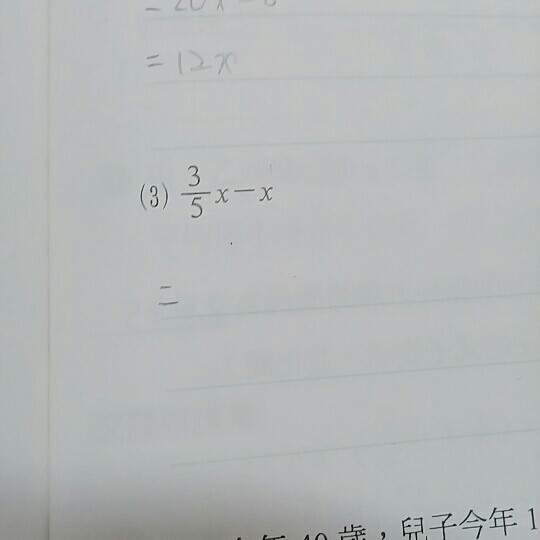 = 12x
(3) 3/5 x − x
=
歲，兒子今年 1